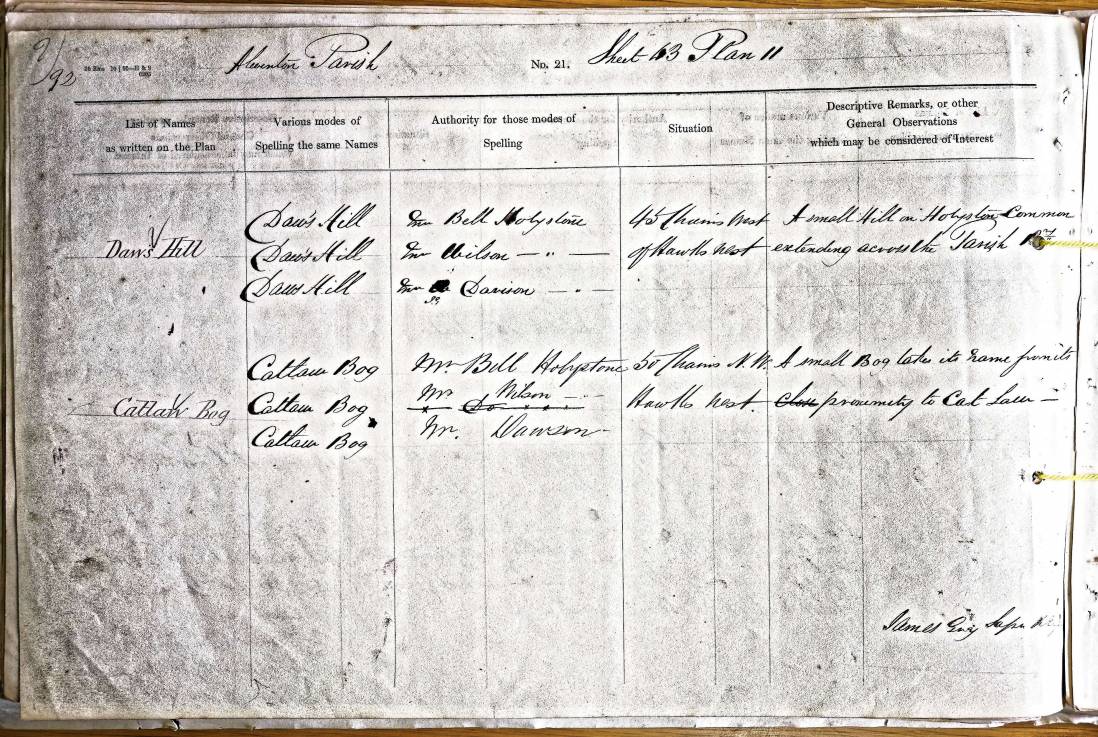 91
/92
Alwenton Parish No. 21. Sheet 43 Plan 11
List of Names
as written on the Plan
Various modes of
Spelling the same Names
Authority for those modes of
Spelling
Situation
Descriptive Remarks, or other
General Observations
which may be considered of Interest
Daw's Hill Mr Bell Holystone 45 Chains West A small Hill on Holystone Common
Daw's Hill Daw's Hill Mr Wilson — " — of Hawks nest extending across the Parish By
Daws Hill Mr Davison — " —
Catlaw Bog Mr Bell Holystone 50 Chains N.W. A small Bog takes its name from its
Catlaw Bog Catlaw Bog Mr Wilson — " Hawks nest. Close proximity to Cat Law —
Do
Catlaw Bog Mr. Dawson
James Sapr R.E.